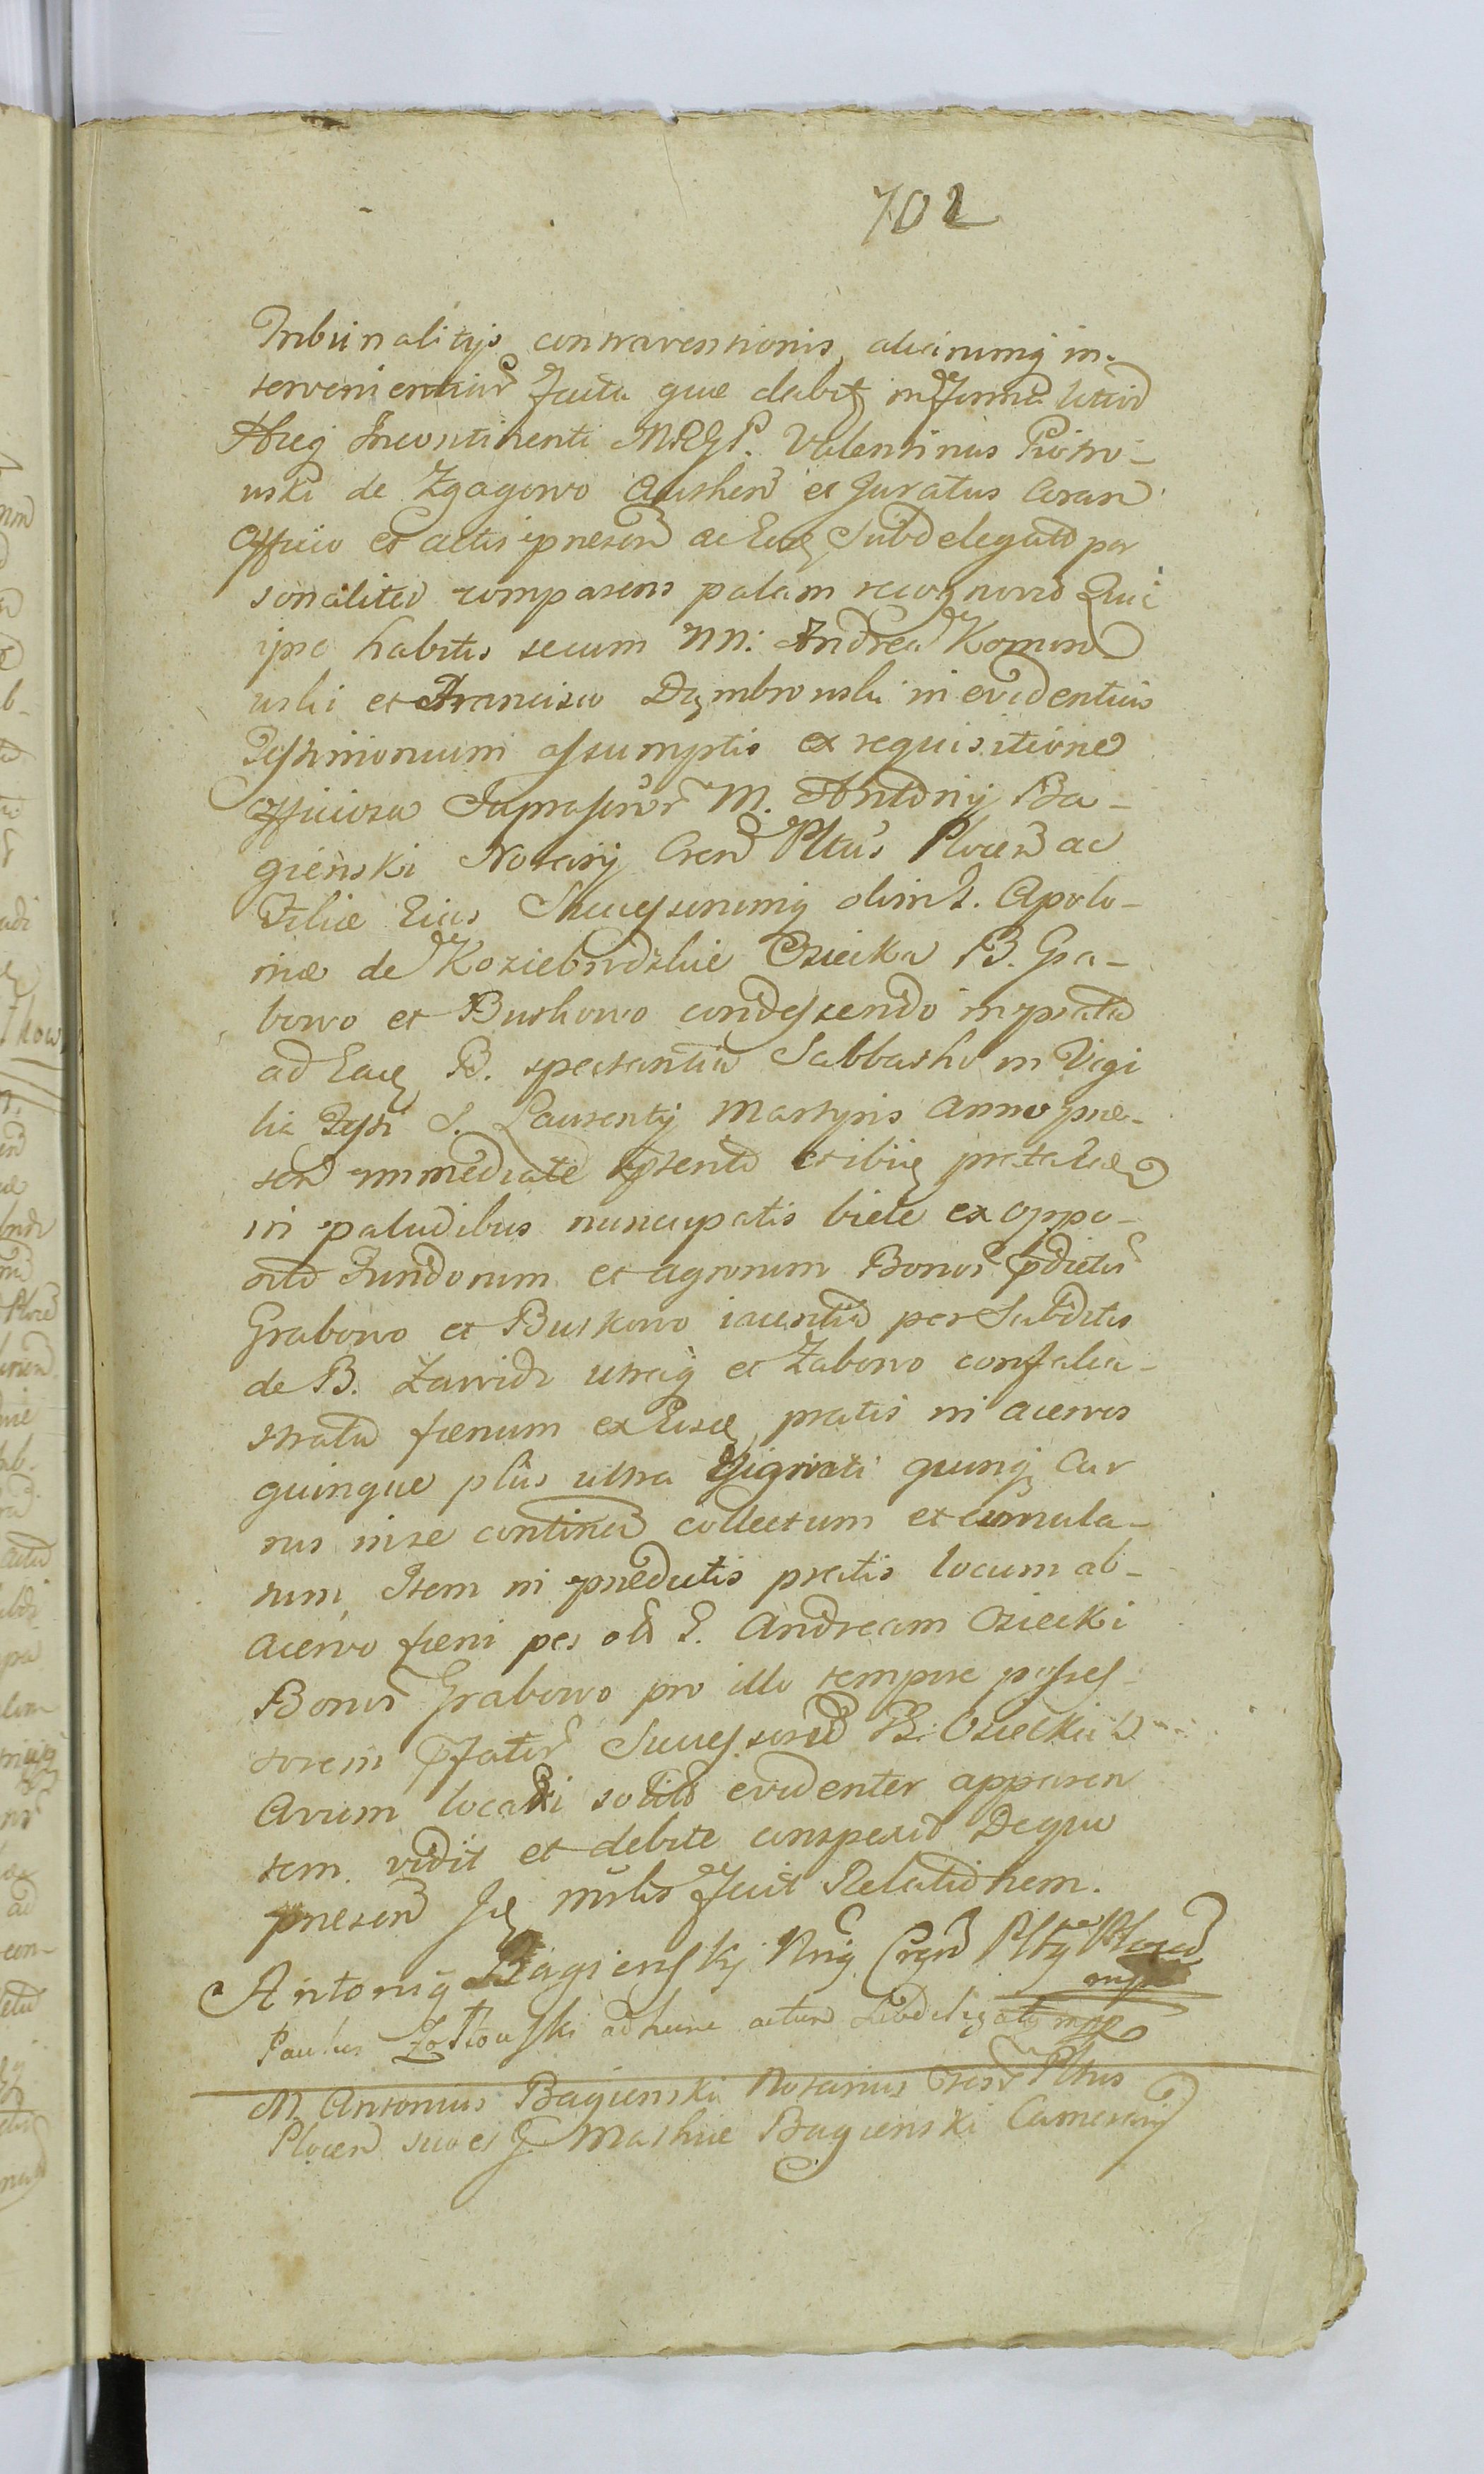 702
Tribunalitijs contraventionis, aliorumq in-
tervenientium facta quæ debite in forma
Hucq Incontinenti MRGP. Valentinus Piotro-
uski de Zgagowo authen et Juratus Coram
Officio et actis præsen ac Eoq Subdelegato per
sonaliter comparens palam recognovit Quia
ipse habitis secum NN: Andrea Komoro
uski et Francisco Dąmbrowski in evidentius
Testimonium assumptis ex requisitione
officiosa M. Antonij Ba-
gienski Notarij Cren Pltus Plocen ac
Filiæ Eius Successorumq olim G. Apolo-
niæ de Koziebrodzkie Osiecka B. Gra-
bowo et Buskowo condescendo in prata
ad Eadq B. spectantia Sabbatho in Vigi
lia Festi S. Laurentij Martyris Anno præ-
sen immediate ibiq
in paludibus nuncupatis biele ex oppo-
sito Fundorum et agrorum Bonor pdictor
Grabowo et Buskowo iacentia per Subditos
de B. Zawidz utraq et Zabowo confalca-
strata fœnum ex Eisdq pratis in acervos
quinque plus ultra Viginti quinq Cur
rus in se contineñ collectum et cumula-
tum, Item in prædictis pratis locum ab
acervo fœni per olim G. Andream Osiecki
Bonor Grabowo pro illo tempore posses-
sorem pfator Successorum B. Osieckich
Avum locari solito evidenter apparen
tem vidit et debite conspexit De quo
præsen fuit Relationem.
Antonig Bagienskj Nrig Crgn Pltg Plocen
mpp
Paulus Zołtowski ad hunc actum Subdelegatg mpp
M. Antonius Bagienski Notarius Cren Pltus
Plocen suo et G. Mathiæ Bagienski Camerarij